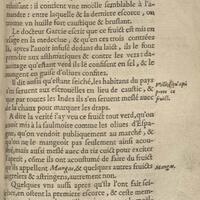 nduisant: il contient vne moëlle semblable à l'a-
mandre: entre laquelle & la derniere escorce, on
comme vn huille fort caustique & bruslant.
Le docteur Garcie escrit que ce fruict est mis en
vsage en la medecine, & qu'en ces contrées
ils, apres l'auoir infusé dedans du laict, ils le font
prendre aux asthmatiques & contre les vers: da-
uantage qu'estant verd ils le confisent en sel, & le
mangent en guise d'oliues confites.
Il dit aussi qu'estant seiché, les habitans du pays
s'en seruent aux escrouëlles en lieu de caustic, &
que par toutes les Indes ils s'en seruent meslé auec
de la chaux pour marquer les draps.
A dire la verité j'ay veu ce fruict tout verd, qu'on
met à la saulmoire comme les oliues d'Espa-
gne, qu'on vendoit publiquement au marché, &
qu'on ne le mangeoit pas seulement ainsi accou-
stré, mais aussi meslé auec du riz cuict pour exciter
l'apetit, côme ils ont acoustumé de faire du fruict
qu'ils appellent Mangas, & de quelques autres fruicts
acerbes & astringens, autrement non.
Quelques vns aussi apres qu'ils l'ont fait sei-
cher, en ostent la premiere escorce, & cette mem-
Mangas.
fruict.